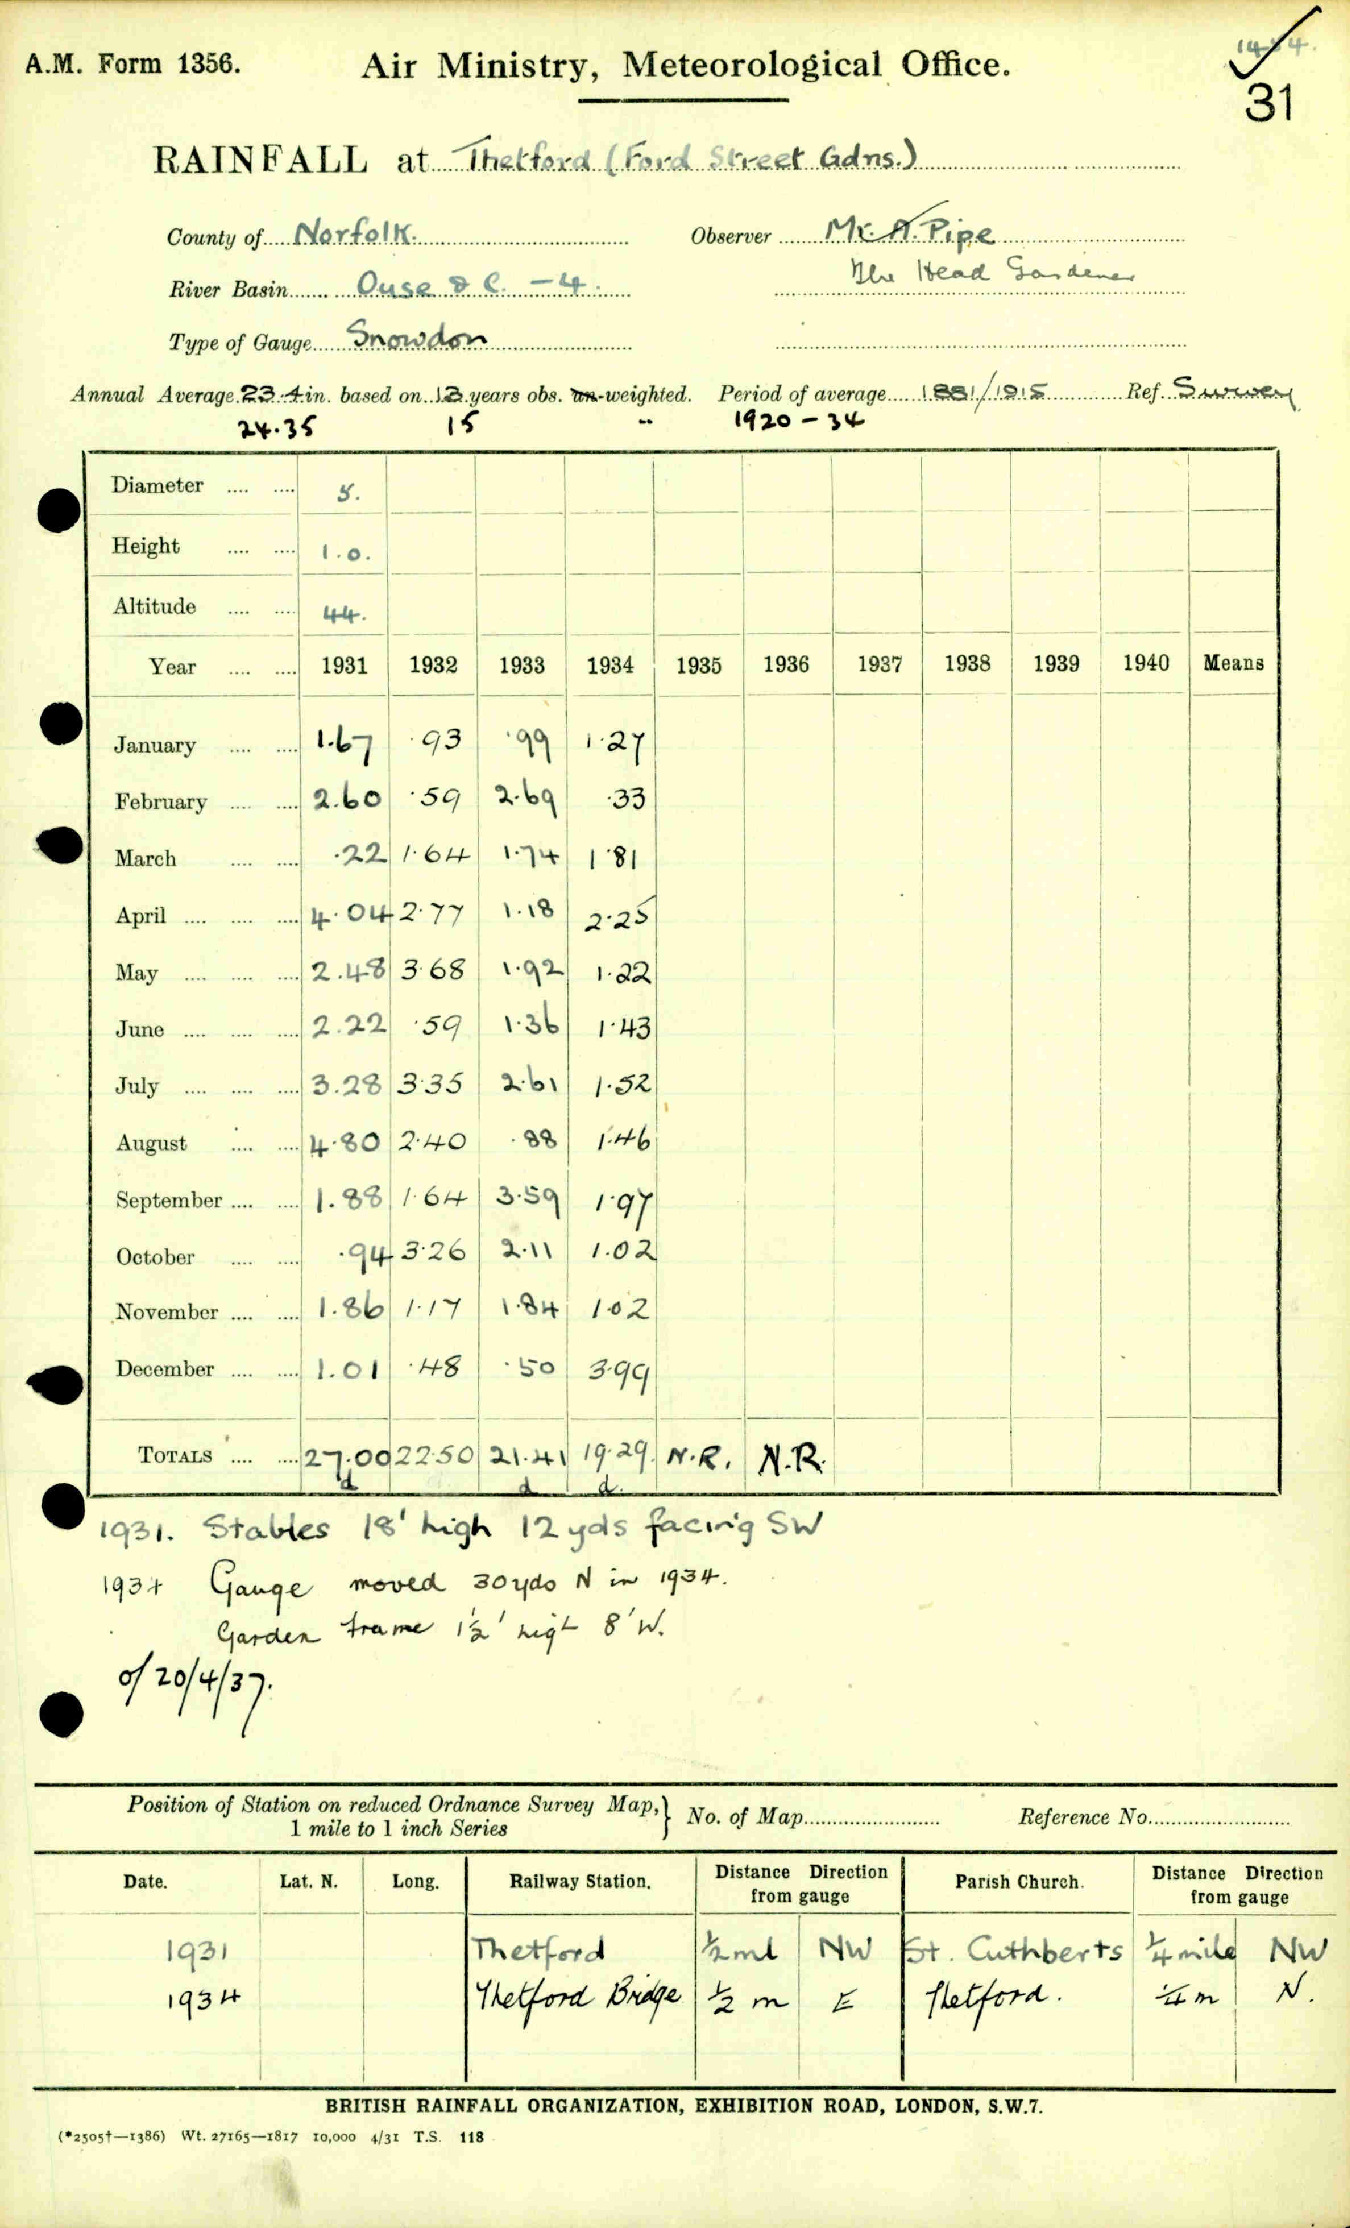 A.M. Form 1356. Air Ministry, Meteorological Office.
31
RAINFALL at Thetford (Ford Street Gdns.)
County of Norfolk. Observer Mr. A. Pipe
The Head Gardener
River Basin Ouse & C. -4.
Type of Gauge Snowdon
Annual Average 23.4 in. based on 13 years obs. un-weighted. Period of average 1881/1915 Ref. Survey
24.35 15 " 1920-34
Diameter 5.
Height 1.0.
Altitude 44.
Year 1931 1932 1933 1934 1935 1936 1937 1938 1939 1940 Means
January 1.67 .93 .99 1.27
February 2.60 .59 2.69 .33
March .22 1.64 1.74 1.81
April 4.04 2.77 1.18 2.25
May 2.48 3.68 1.92 1.22
June 2.22 .59 1.36 1.43
July 3.28 3.35 2.61 1.52
August 4.80 2.40 .88 1.46
September 1.88 1.64 3.59 1.97
October .94 3.26 2.11 1.02
November 1.86 1.17 1.84 1.02
December 1.01 .48 .50 3.99
TOTALS 27.00 22.50 21.41 19.29 N.R. N.R.
d d d.
1931. Stables 18' high 12 yds facing SW
1934 Gauge moved 30 yds N in 1934.
Garden frame 1½' high 8' W.
of 20/4/37.
Position of Station on reduced Ordnance Survey Map, } No. of Map Reference No.
1 mile to 1 inch Series
Date. Lat. N. Long. Railway Station. Distance Direction from gauge Parish Church. Distance Direction from gauge
1931 Thetford ½ ml NW St. Cuthberts ¼ mile NW
1934 Thetford Bridge ½ m E Thetford. ¼ m N.
BRITISH RAINFALL ORGANIZATION, EXHIBITION ROAD, LONDON, S.W.7.
(*2505†—1386) Wt. 27165—1817 10,000 4/31 T.S. 118